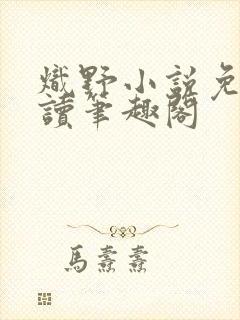 熾野小說免
讀筆趣閣
馬熹熹